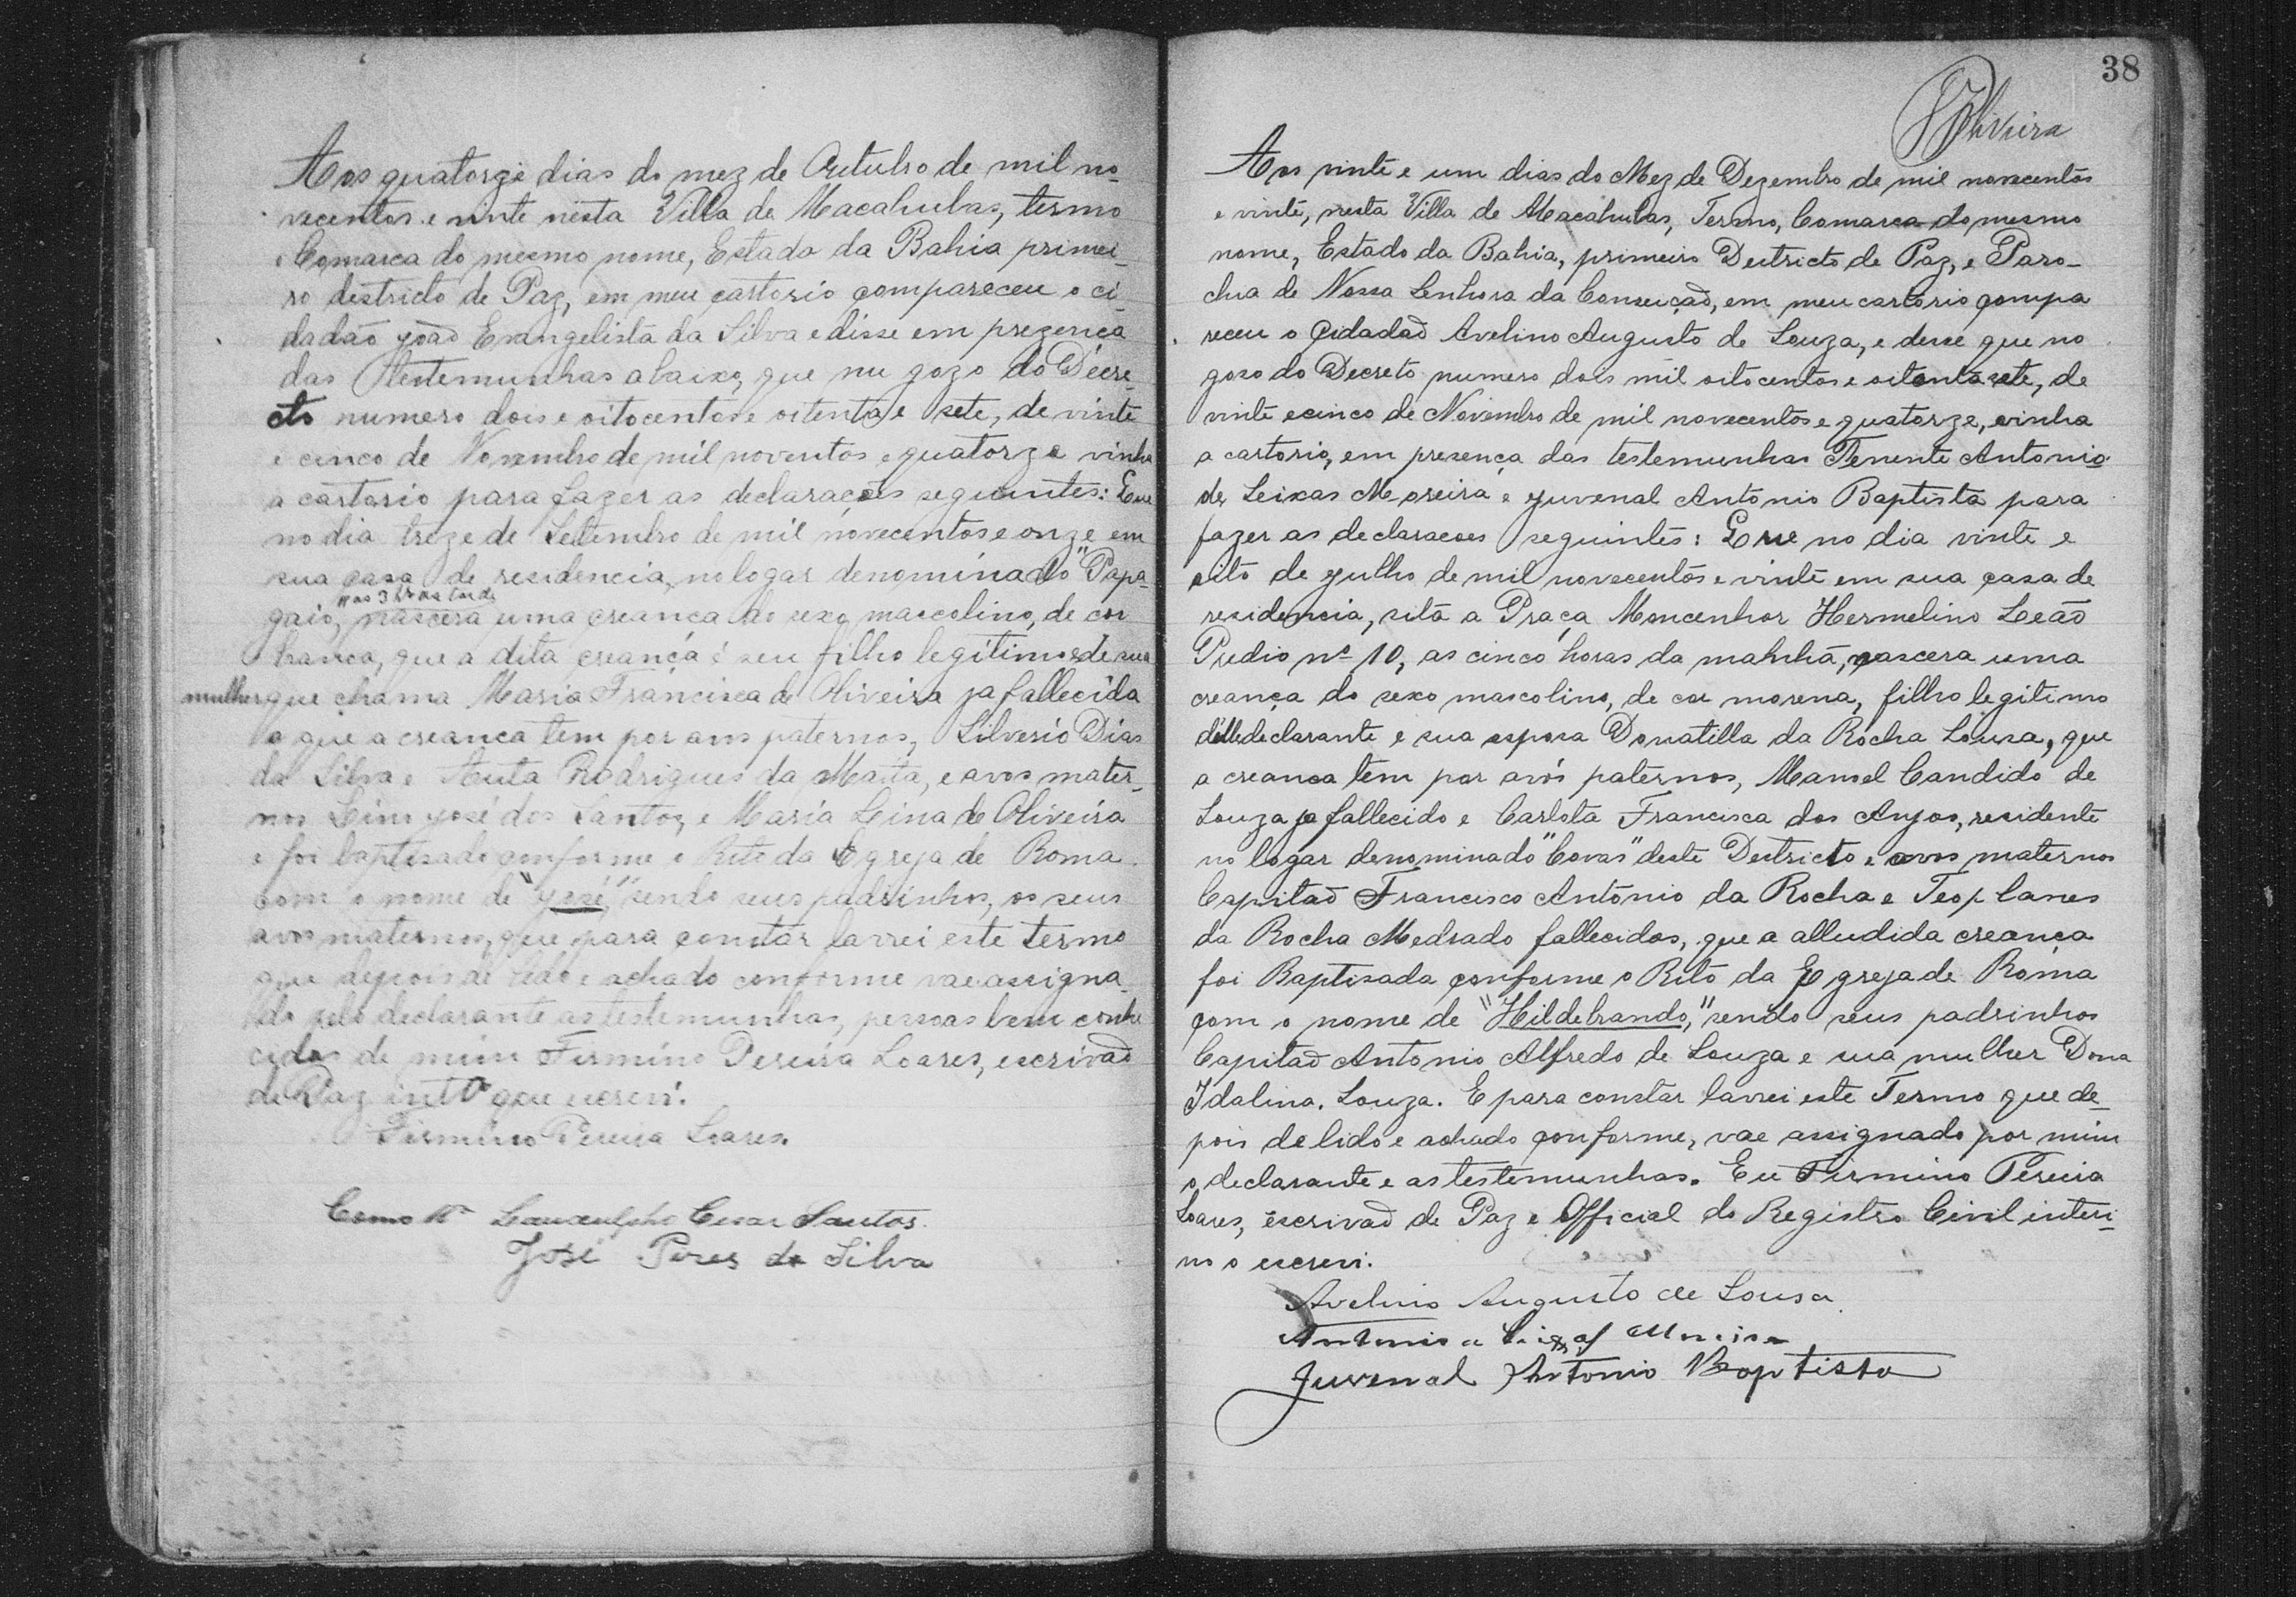 Aos quatorze dias do mez de Outubro de mil no-
vecentos e vinte nesta Villa de Macahubas, termo
e Comarca do mesmo nome, Estado da Bahia primei-
ro destricto de Paz, em meu cartorio compareceu o ci-
dadão João Evangelista da Silva e disse em prezença
das testemunhas abaixo, que nu gozo do Decre-
cto numero dois e oitocentos e oitenta e sete, de vinte
e cinco de Novembro de mil noventos e quatorze vinha
a cartorio para fazer as declaracões seguintes: Que
no dia treze de Setembro de mil novecentos e onze em
sua casa de residencia, no logar denominado "Papa-
"as 3 hrs da tarde
gaio, nascera uma creanca do sexo mascolino, de cor
branca, que a dita creança é seu filho legitimo e de sua
mulher que chama Maria Francisca de Oliveira ja fallecida
e que a creanca tem por avos paternos, Silverio Dias
da Silva e Anta Rodrigues da Matta, e avos mater-
nos Lino José dos Santos, e Maria Leina de Oliveira
e foi baptisado conforme o Rito da Egreja de Roma
com o nome de "José," sendo seus padrinhos, os seus
avos maternos, que para constar lavrei este termo
que depois de lido e achado conforme vae assigna-
do pelo declarante as testemunhas, pessoas bem conhe
cidas de mim Firmino Pereira Soares, escrivão
de Paz intº que escrevi.
Firmino Pereira Soares.
Como tª Cesar Santos.
José Pires da Silva
38
Oliveira
Aos vinte e um dias do Mez de Dezembro de mil novecentos
e vinte, nesta Villa de Macahubas, Termo, Comarca do mesmo
nome, Estado da Bahia, primeiro Destricto de Paz, e Paro-
chia de Nossa Senhora da Conceição, em meu cartorio compa
receu o Cidadão Avelino Augusto de Souza, e desse que no
goso do Decreto numero dois mil oitocentos e oitenta sete, de
vinte e cinco de Novembro de mil novecentos e quatorze, vinha
a cartorio, em presença das testemunhas Tenente Antonio
de Seixas Moreira e Juvenal Antonio Baptista para
fazer as declaracoes seguintes: Que no dia vinte e
oito de Julho de mil novecentos e vinte em sua casa de
residencia, sitā a Praça Moncenhor Hermelino Leão
Predio nº 10, as cinco horas da mahhã, nascera uma
creança do sexo mascolino, de cor morena, filho legitimo
d'elle declarante e sua esposa Donatilla da Rocha Sousa, que
a creanca tem por avós paternos, Manoel Candido de
Souza ja fallecido e Carlota Francisca dos Anjos, residente
no logar denominado "Covas" deste Destricto e avos maternos
Capitão Francisco Antonio da Rocha e
da Rocha Medrado fallecidos, que a alludida creança
foi Baptisada conforme o Rito da Egreja de Roma
com o nome de "Hildebrando," sendo seus padrinhos
Capitão Antonio Alfredo de Souza e sua mulher Dona
Idalina. Souza. E para constar lavrei este Termo que de-
pois de lido e achado conforme, vae assignado por mim
o declarante e as testemunhas. Eu Firmino Pereira
Soares, escrivão de Paz e Official do Registro Civil interi-
no o escrevi.
Avelino Augusto de Sousa
Antonio de Seixas Moreira
Juvenal Antonio Baptista